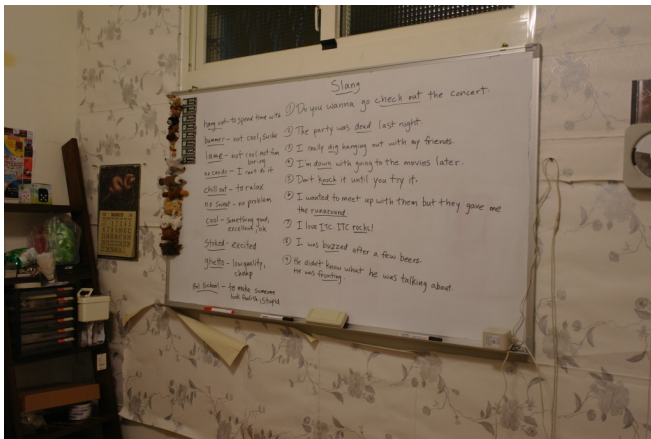 Slang
hang out - to spend time with
bummer - not cool, sucks
lame - not cool, not fun
boring
no can do - I can't do it
chill out - to relax
no sweat - no problem
cool - something good,
excellent, ok
Stoked - excited
ghetto - low quality,
cheap
- to make someone
look foolish, stupid
① Do you wanna go check out the concert.
② The party was dead last night.
③ I really dig hanging out with my friends.
④ I'm down with going to the movies later.
⑤ Don't knock it until you try it.
⑥ I wanted to meet up with them but they gave me
the runaround.
⑦ I love ITC. ITC rocks!
⑧ I was buzzed after a few beers.
⑨ He didn't know what he was talking about.
He was fronting.